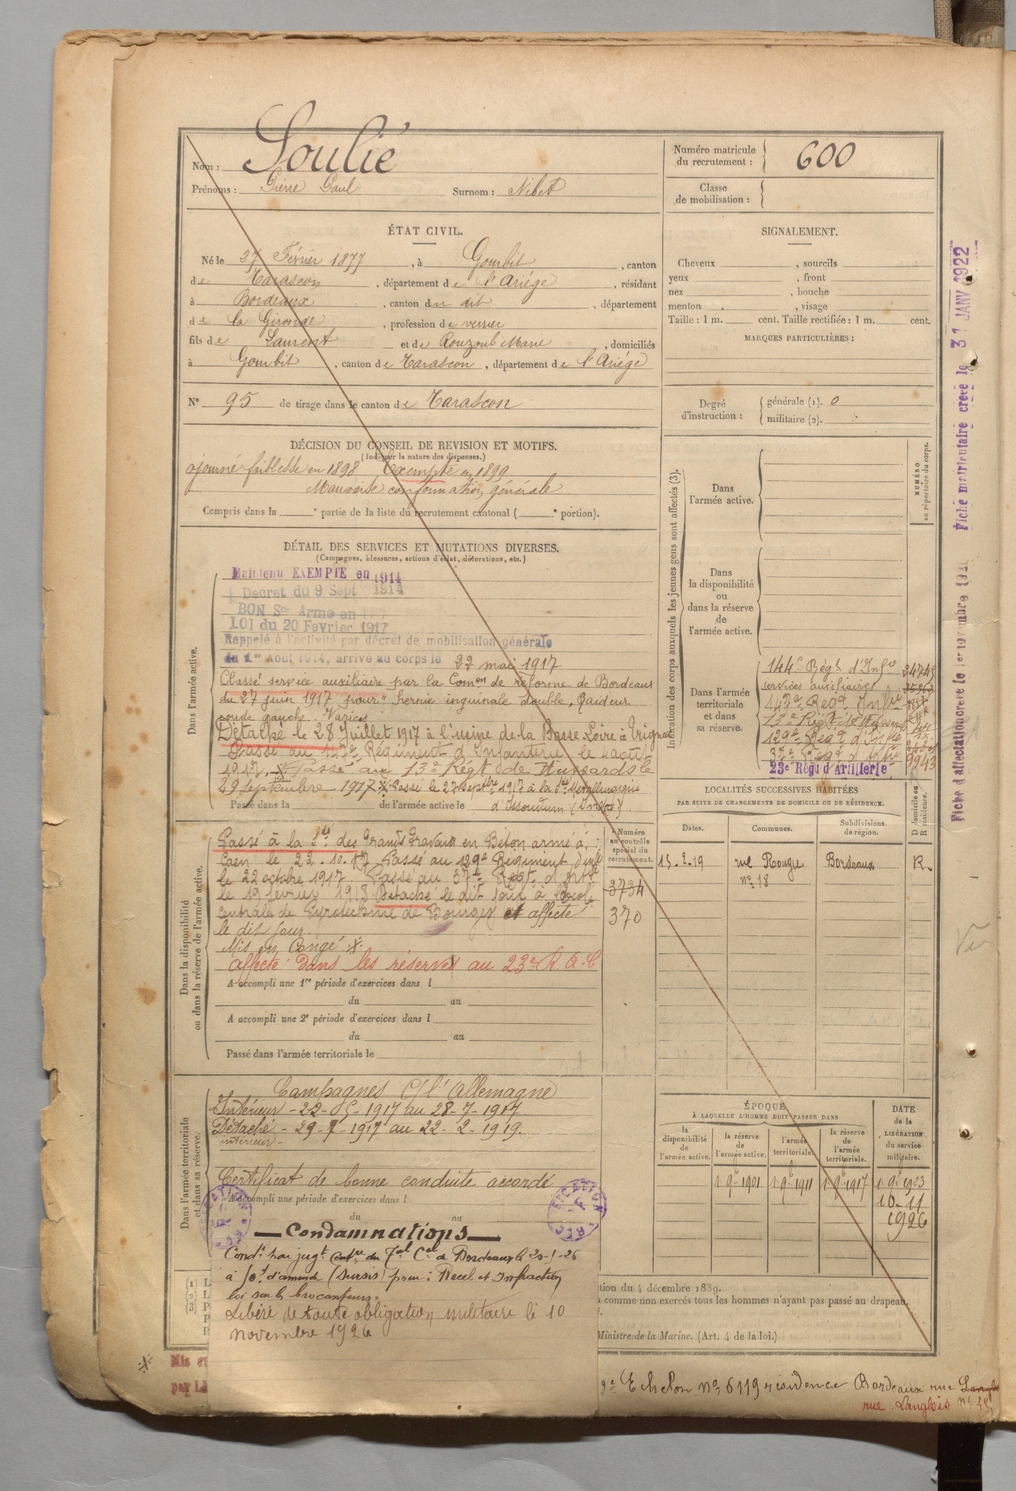 Nom : Soulié
Prénoms : Pierre Paul Surnom : Nibet
Numéro matricule du recrutement : 600
Classe de mobilisation :
ÉTAT CIVIL.
Né le 27 Février 1877, à Gourbit, canton
de Tarascon, département de l'Ariège, résidant
à Bordeaux, canton de dit, département
de la Gironde, profession de verrier
fils de Laurent et de Rouzoul Marie, domiciliés
à Gourbit, canton de Tarascon, département de l'Ariège
N° 95 de tirage dans le canton de Tarascon
SIGNALEMENT.
Cheveux , sourcils
yeux , front
nez , bouche
menton , visage
Taille : 1 m. cent. Taille rectifiée : 1 m. cent.
MARQUES PARTICULIÈRES :
Degré d'instruction : générale (1). 0
militaire (2).
DÉCISION DU CONSEIL DE REVISION ET MOTIFS.
(Indiquer la nature des dispenses.)
ajourné faiblesse en 1898 Exempté en 1899
Mauvaise conformation générale
Compris dans la e partie de la liste du recrutement cantonal ( e portion).
DÉTAIL DES SERVICES ET MUTATIONS DIVERSES.
(Campagnes, blessures, actions d'éclat, décorations, etc.)
Dans l'armée active.
Maintenu EXEMPTE en 1914
Decret du 9 Sept 1914
BON Sce Armé en
LOI du 20 Fevrier 1917
Rappelé à l'activité par décret de mobilisation générale
du 1er Août 1914, arrivé au corps le 22 mai 1917
Classé service auxiliaire par la Comon de réforme de Bordeaux
du 27 juin 1917 pour hernie inguinale double, raideur
coude gauche. Varices
Détaché le 28 Juillet 1917 à l'usine de la Basse Loire à Trignac
Passé au Régiment d'Infanterie le
1917, Passé au 13e Régt de Hussards le
29 Septembre 1917 Passé le 27 1917 à la
Passé dans la de l'armée active le d'Issoudun (Indre).
Dans la disponibilité ou dans la réserve de l'armée active.
Passé à la des Grands Travaux en Béton armé à
Caen le 22.10.17 Passé au 129e Régiment d'Infie
le 22 octobre 1917. Passé au 37e Régt d'Artie
le 19 février 1918 Détaché le dit jour à l'Ecole
Centrale de Pyrotechnie de Bourges et affecté
le dit jour.
Mis en Congé
affecté dans les réserves au 23e R.A.C
A accompli une 1re période d'exercices dans l
du au
A accompli une 2e période d'exercices dans l
du au
Passé dans l'armée territoriale le
Numéro au contrôle spécial du recrutement.
3734
370
Indication des corps auxquels les jeunes gens sont affectés (3).
NUMÉRO au répertoire du corps.
Dans l'armée active.
Dans la disponibilité ou dans la réserve de l'armée active.
Dans l'armée territoriale et dans sa réserve.
144e Régt d'Infie
services auxiliaires
129e Régt d'Infie
37e Régt d'Artie
9943
23e Régt d'Artillerie
LOCALITÉS SUCCESSIVES HABITÉES
PAR SUITE DE CHANGEMENTS DE DOMICILE OU DE RÉSIDENCE.
Dates. Communes. Subdivisions de région. D domicile ou R résidence.
15.2.19 rue Rouge Bordeaux R.
n° 18
Dans l'armée territoriale et dans sa réserve.
Campagnes C/ l'Allemagne
Intérieur - 22-5-1917 au 28-7-1917
Détaché - 29-7-1917 au 22-2-1919.
intérieur -
Certificat de bonne conduite accordé
accompli une période d'exercices dans l
du au
Condamnations
Condé par jugt du Tal Cel de Bordeaux le 20-1-26
à 50f d'amende (Sursis) pour : Recel et Infraction
loi sur les brocanteurs.
Libéré de toute obligation militaire le 10
novembre 1926
ÉPOQUE
À LAQUELLE L'HOMME DOIT PASSER DANS
la disponibilité de l'armée active.
la réserve de l'armée active.
l'armée territoriale.
la réserve de l'armée territoriale.
DATE de la LIBÉRATION du service militaire.
1 9bre 1901 1 9bre 1911 1 9bre 1917 1 9bre 1923
10-11
1926
tion du 4 décembre 1889.
comme non exercés tous les hommes n'ayant pas passé au drapeau.
Ministre de la Marine. (Art. 4 de la loi.)
Mis en
par
Echelon n° 6119 résidence Bordeaux rue
rue Langlois n°
Fiche matriculaire créée le 31 JANV 1922
Fiche d'affectation créée le 1er novembre